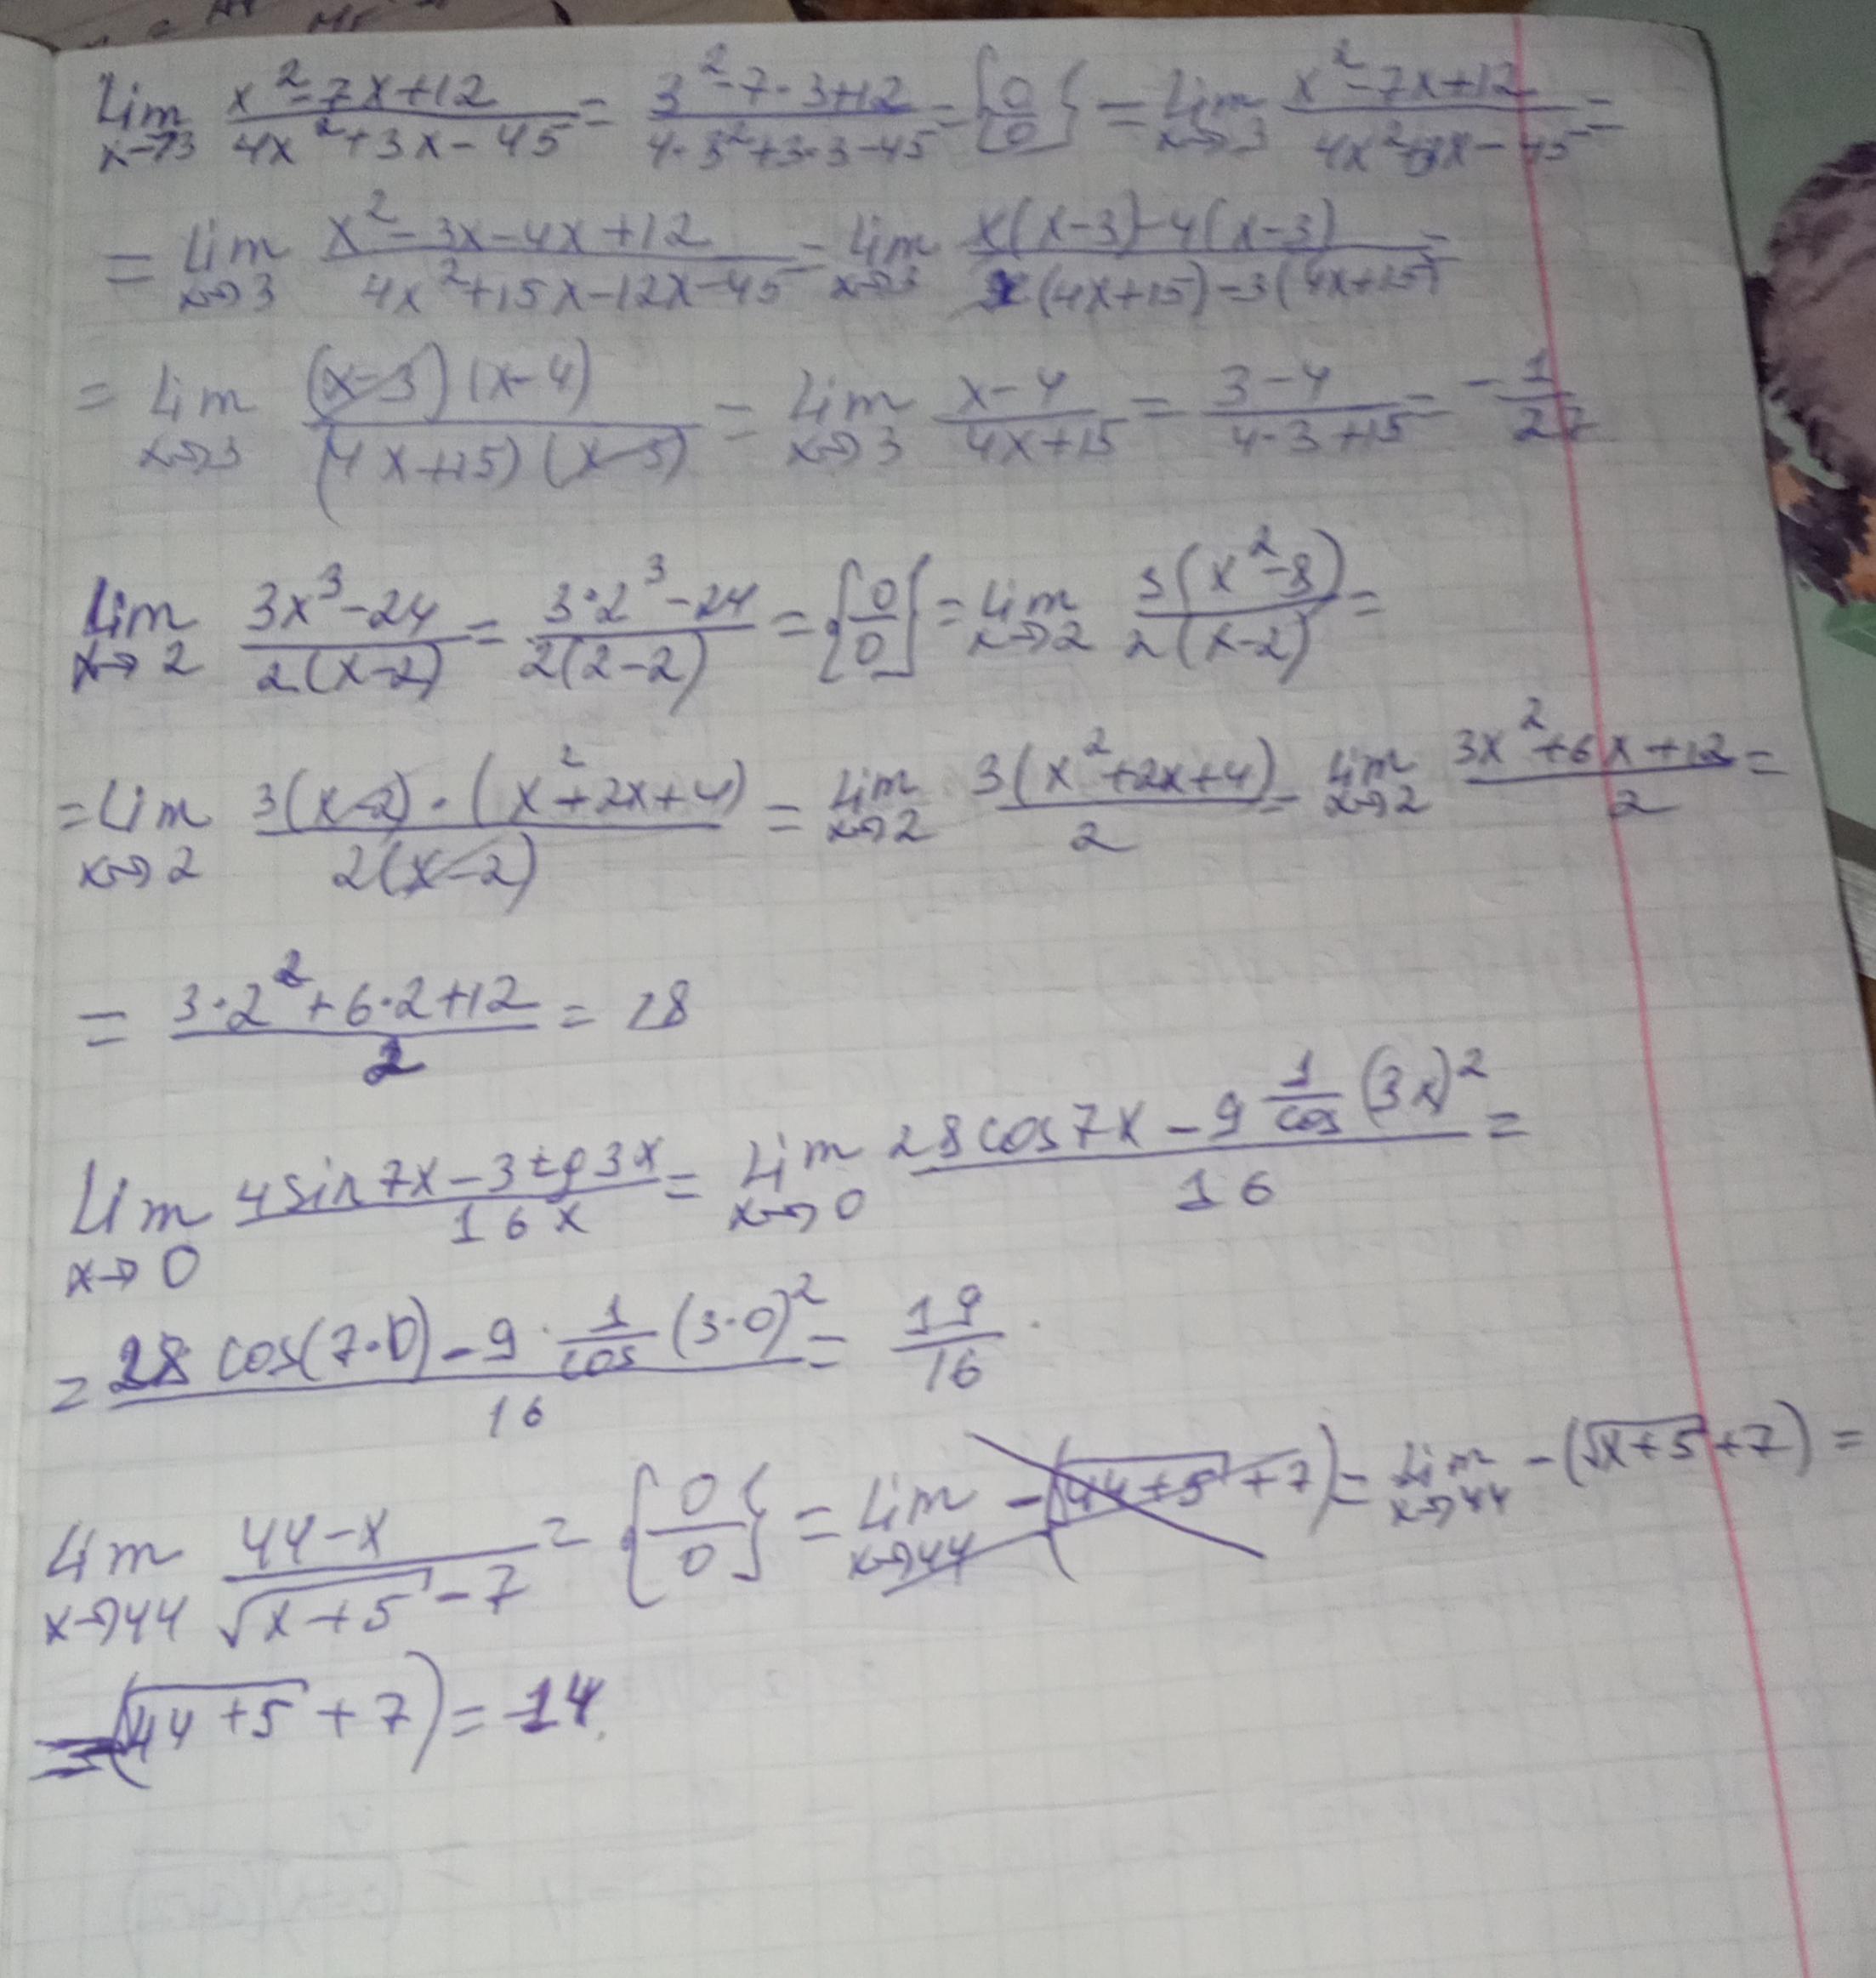 lim x→3 (x²-7x+12)/(4x²+3x-45) = (3²-7·3+12)/(4·3²+3·3-45) = {0/0} = lim x→3 (x²-7x+12)/(4x²+3x-45) =
= lim x→3 (x²-3x-4x+12)/(4x²+15x-12x-45) = lim x→3 (x(x-3)-4(x-3))/(x(4x+15)-3(4x+15)) =
= lim x→3 ((x-3)(x-4))/((4x+15)(x-3)) = lim x→3 (x-4)/(4x+15) = (3-4)/(4·3+15) = -1/27
lim x→2 (3x³-24)/(2(x-2)) = (3·2³-24)/(2(2-2)) = {0/0} = lim x→2 (3(x²-8))/(2(x-2)) =
= lim x→2 (3(x-2)·(x²+2x+4))/(2(x-2)) = lim x→2 (3(x²+2x+4))/2 = lim x→2 (3x²+6x+12)/2 =
= (3·2²+6·2+12)/2 = 18
lim x→0 (4sin7x-3tg3x)/(16x) = lim x→0 (28cos7x-9 1/cos (3x)²)/16 =
= (28cos(7·0)-9·1/cos (3·0)²)/16 = 19/16.
lim x→44 (44-x)/(√(x+5)-7) = {0/0} = lim x→44 -(√(44+5)+7) = lim x→44 -(√(x+5)+7) =
=-(√(44+5)+7) = -14.